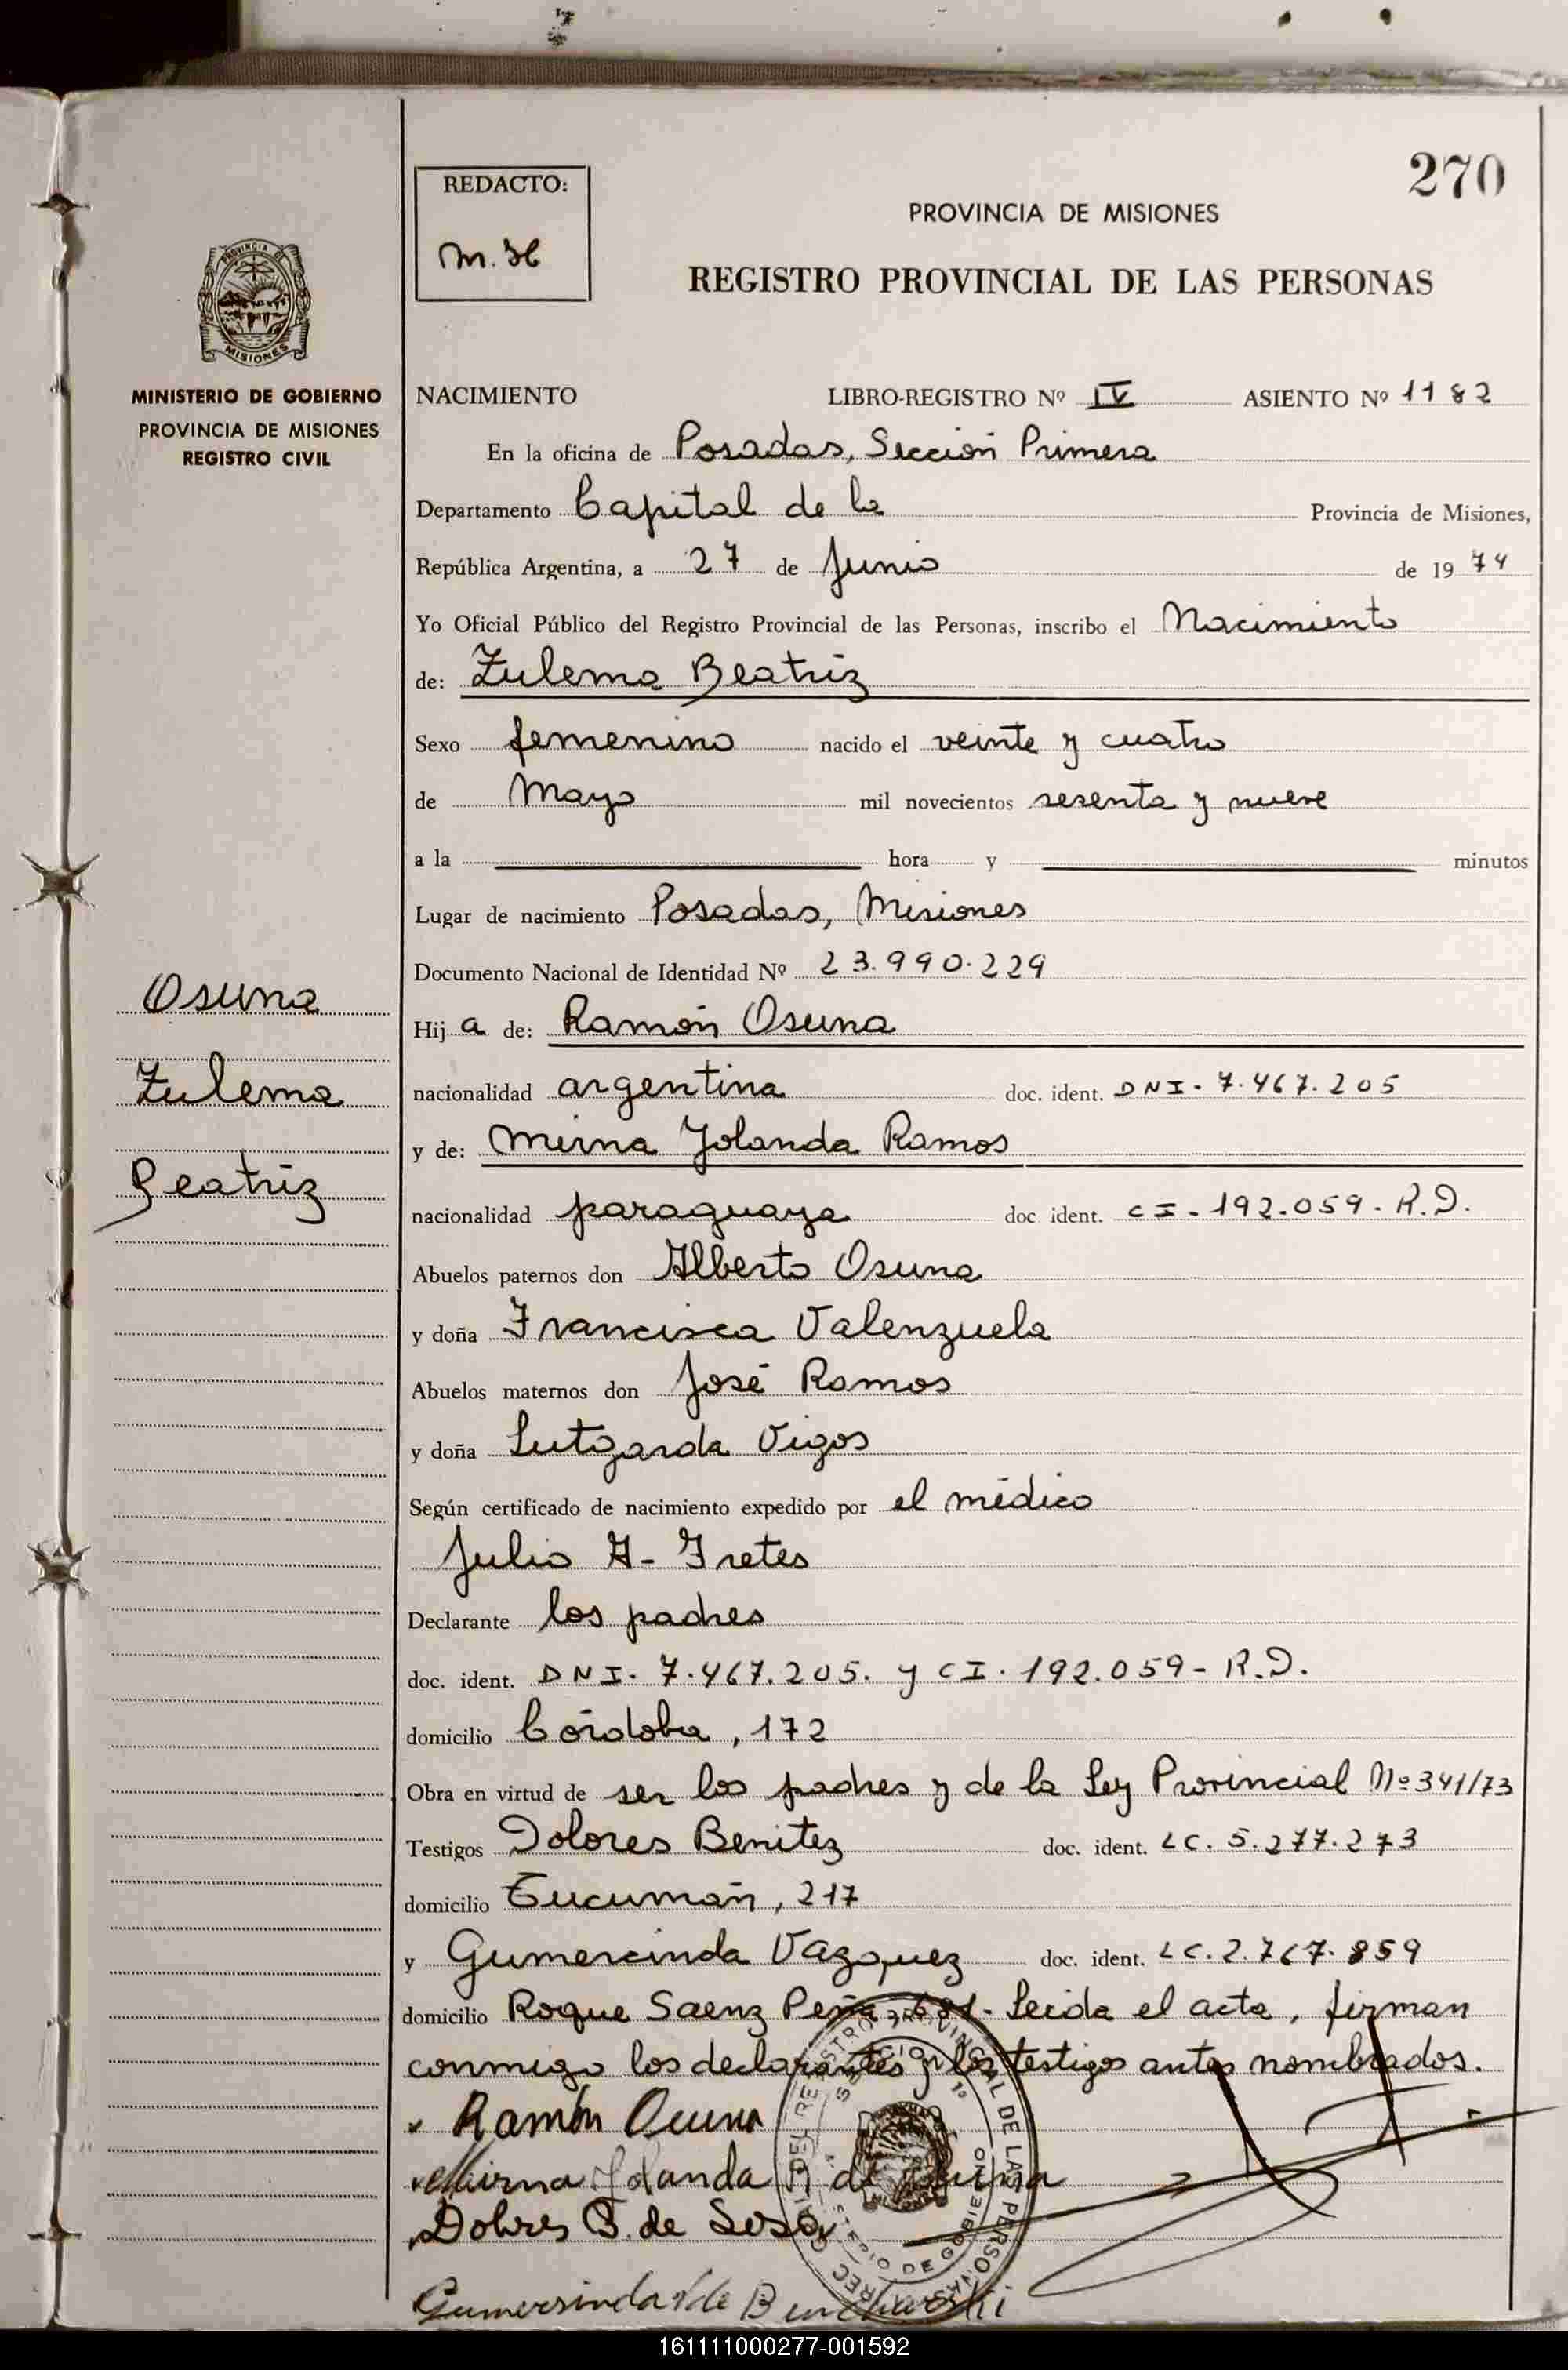 270
REDACTO:
m.H
PROVINCIA DE MISIONES
REGISTRO PROVINCIAL DE LAS PERSONAS
PROVINCIA DE
MISIONES
MINISTERIO DE GOBIERNO
PROVINCIA DE MISIONES
REGISTRO CIVIL
NACIMIENTO LIBRO-REGISTRO Nº IV ASIENTO Nº 1182
En la oficina de Posadas, Sección Primera
Departamento Capital de la Provincia de Misiones,
República Argentina, a 27 de Junio de 1974
Yo Oficial Público del Registro Provincial de las Personas, inscribo el Nacimiento
de: Zulema Beatriz
Sexo femenino nacido el veinte y cuatro
de Mayo mil novecientos sesenta y nueve
a la hora y minutos
Lugar de nacimiento Posadas, Misiones
Documento Nacional de Identidad Nº 23.990.229
Osuna
Zulema
Beatriz
Hij a de: Ramón Osuna
nacionalidad argentina doc. ident. DNI- 7.467.205
y de: Mirna Yolanda Ramos
nacionalidad paraguaya doc ident. CI- 192.059- R.D.
Abuelos paternos don Alberto Osuna
y doña Francisca Valenzuela
Abuelos maternos don José Ramos
y doña Lutgarda Vigos
Según certificado de nacimiento expedido por el médico
Julio A- Fretes
Declarante los padres
doc. ident. DNI- 7.467.205. y CI. 192.059- R.D.
domicilio Córdoba, 172
Obra en virtud de ser los padres y de la Ley Provincial Nº 341/73
Testigos Dolores Benitez doc. ident. LC. 5.277.273
domicilio Tucumán, 217
y Gumercinda Vazquez doc. ident. LC. 2.767.859
domicilio Roque Saenz Peña, 681- Leida el acta, firman
conmigo los declarantes y los testigos antes nombrados.
Ramón Osuna
Mirna Yolanda R de Osuna
Dolores B. de Sosa
Gumersinda V de
161111000277-001592